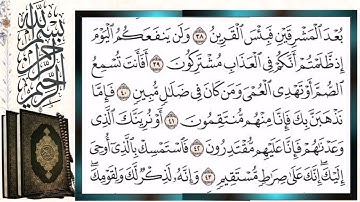 بسم الله الرحمن الرحيم
بُعْدَ ٱلْمَشْرِقَيْنِ فَبِئْسَ ٱلْقَرِينُ ٣٨ وَلَن يَنفَعَكُمُ ٱلْيَوْمَ
إِذ ظَّلَمْتُمْ أَنَّكُمْ فِى ٱلْعَذَابِ مُشْتَرِكُونَ ٣٩ أَفَأَنتَ تُسْمِعُ
ٱلصُّمَّ أَوْ تَهْدِى ٱلْعُمْىَ وَمَن كَانَ فِى ضَلَٰلٍ مُّبِينٍ ٤٠ فَإِمَّا
نَذْهَبَنَّ بِكَ فَإِنَّا مِنْهُم مُّنتَقِمُونَ ٤١ أَوْ نُرِيَنَّكَ ٱلَّذِى
وَعَدْنَٰهُمْ فَإِنَّا عَلَيْهِم مُّقْتَدِرُونَ ٤٢ فَٱسْتَمْسِكْ بِٱلَّذِىٓ أُوحِىَ
إِلَيْكَ ۖ إِنَّكَ عَلَىٰ صِرَٰطٍ مُّسْتَقِيمٍ ٤٣ وَإِنَّهُۥ لَذِكْرٌ لَّكَ وَلِقَوْمِكَ ۖ